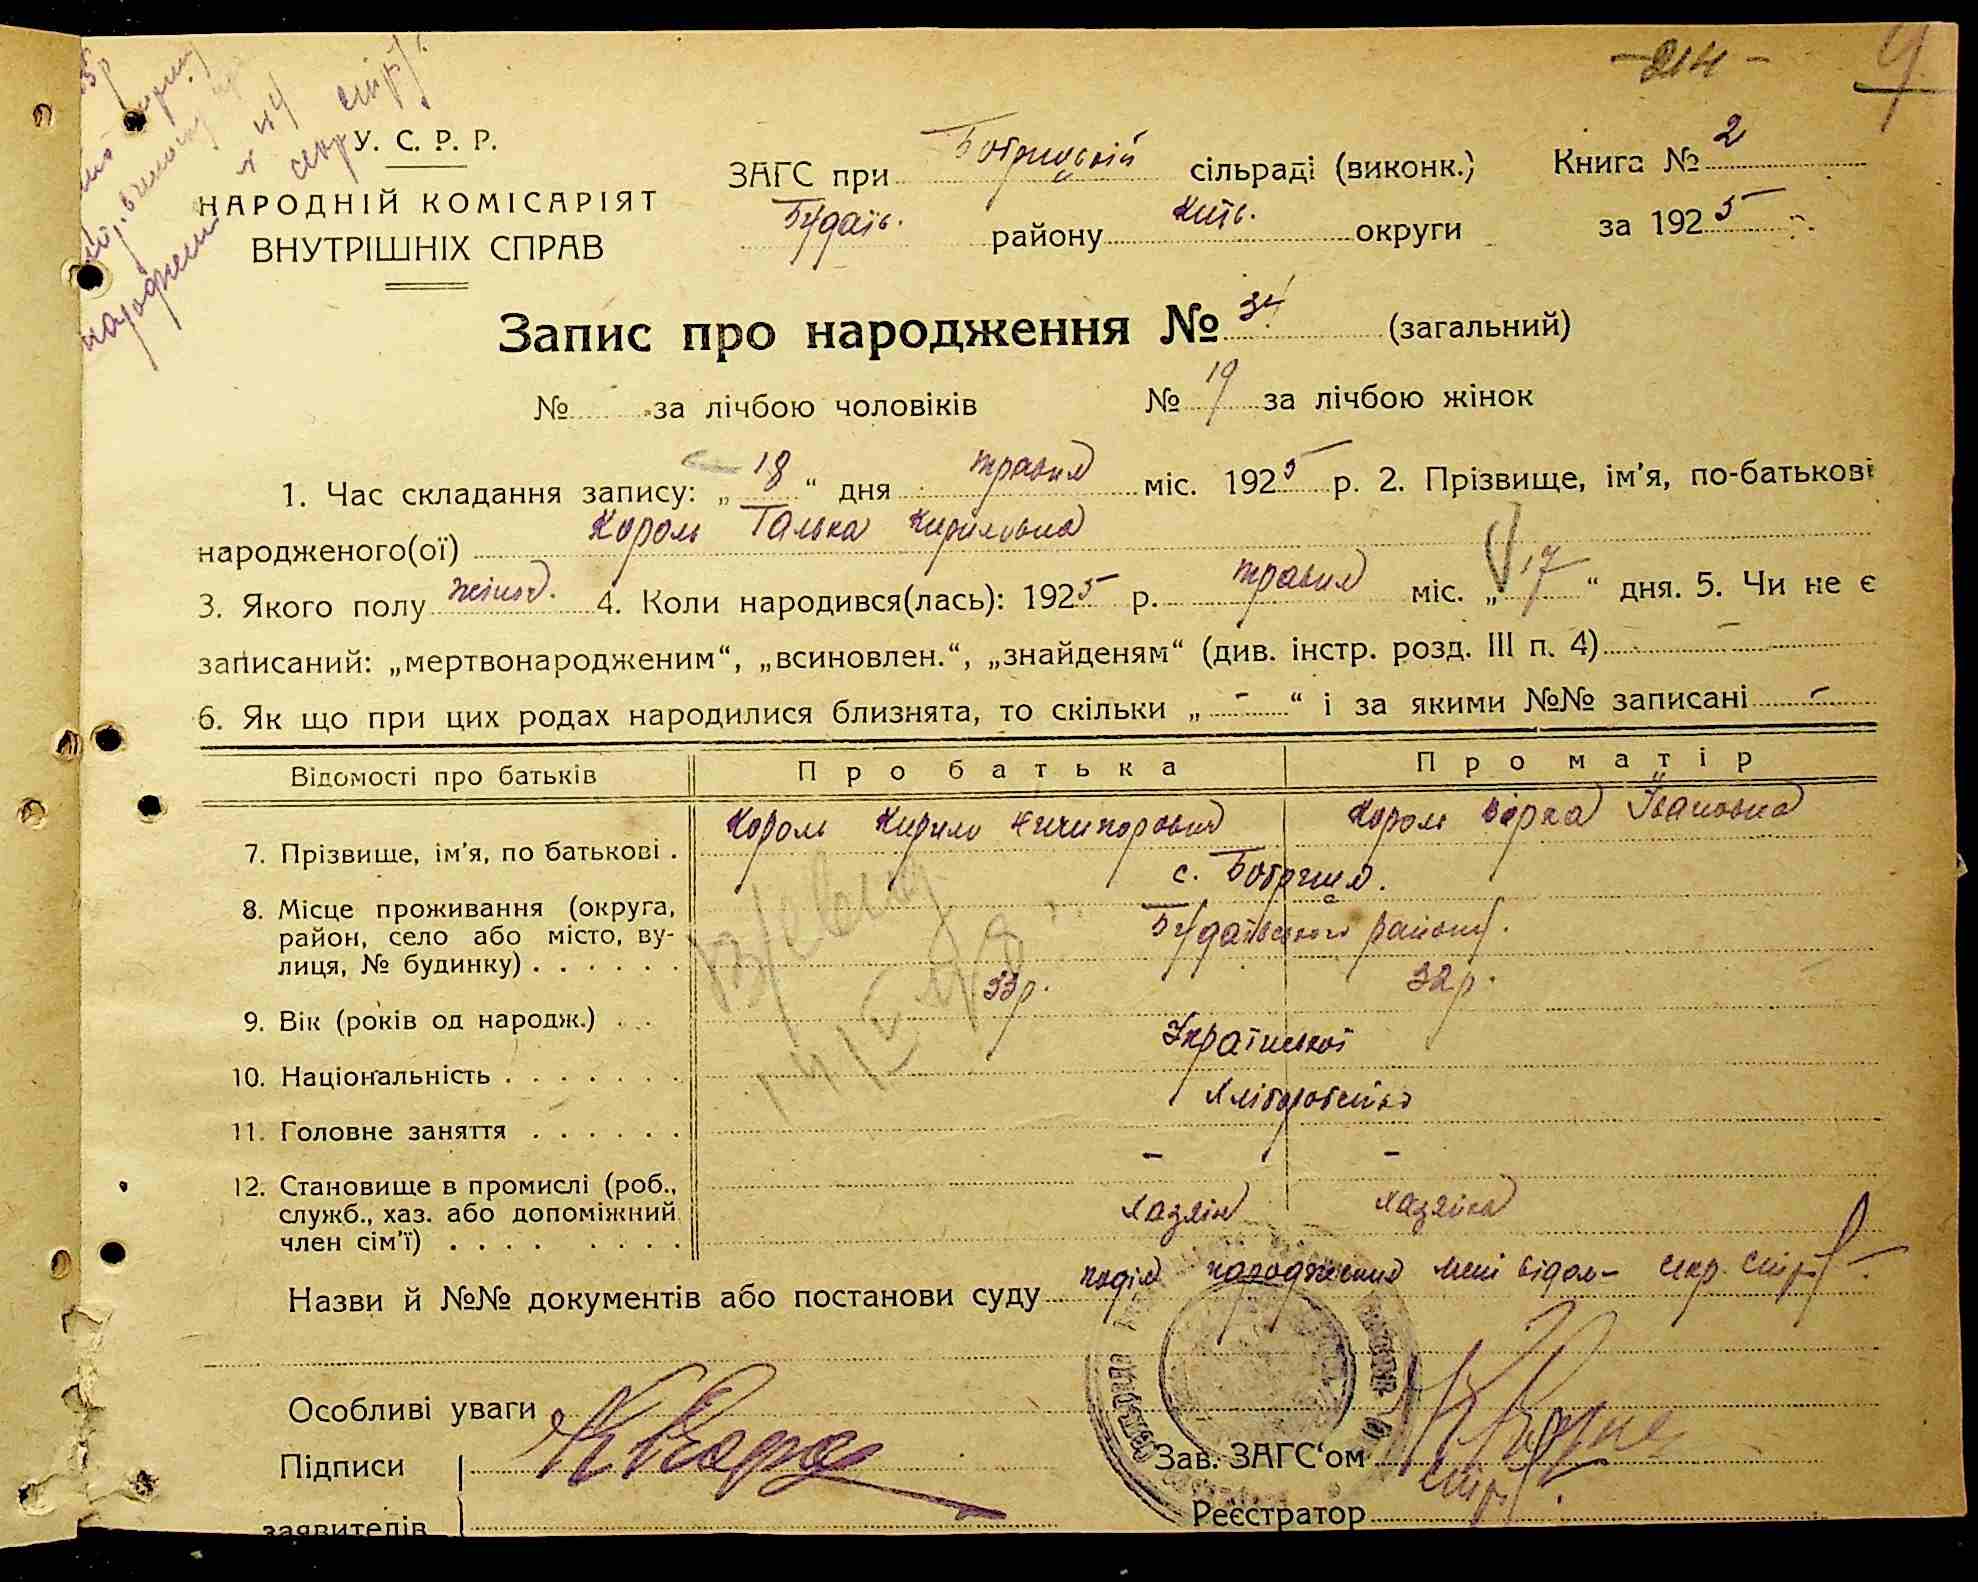 -214- 9
У. С. Р. Р.
НАРОДНІЙ КОМІСАРІЯТ
ВНУТРІШНІХ СПРАВ
ЗАГС при Бобрицькій сільраді (виконк.) Книга № 2
Будаїв. району Київ. округи за 1925 р.
Запис про народження № 34 (загальний)
№ за лічбою чоловіків № 19 за лічбою жінок
1. Час складання запису: „18“ дня травня міс. 1925 р. 2. Прізвище, ім'я, по-батькові
народженого(ої) Король Галька Кириловна
3. Якого полу жіноч. 4. Коли народився(лась): 1925 р. травня міс. „17“ дня. 5. Чи не є
записаний: „мертвонародженим“, „всиновлен.“, „знайденям“ (див. інстр. розд. III п. 4) -
6. Як що при цих родах народилися близнята, то скільки „-“ і за якими №№ записані -
Відомості про батьків Про батька Про матір
7. Прізвище, ім'я, по батькові . Король Кирило Ничипорович Король Вірка Івановна
8. Місце проживання (округа, с. Бобриця.
район, село або місто, ву- Будаївського району.
лиця, № будинку) . . . . . .
9. Вік (років од народж.) . . 33р. 32р.
10. Національність . . . . . . . Української
11. Головне заняття . . . . . . Хліборобство
12. Становище в промислі (роб., - -
служб., хаз. або допоміжний Хазяїн Хазяйка
член сім'ї) . . . . . . . .
Назви й №№ документів або постанови суду подія народження мені відом- секр. сільр.
Особливі уваги
Підписи Зав. ЗАГС'ом
заявителів Реєстратор